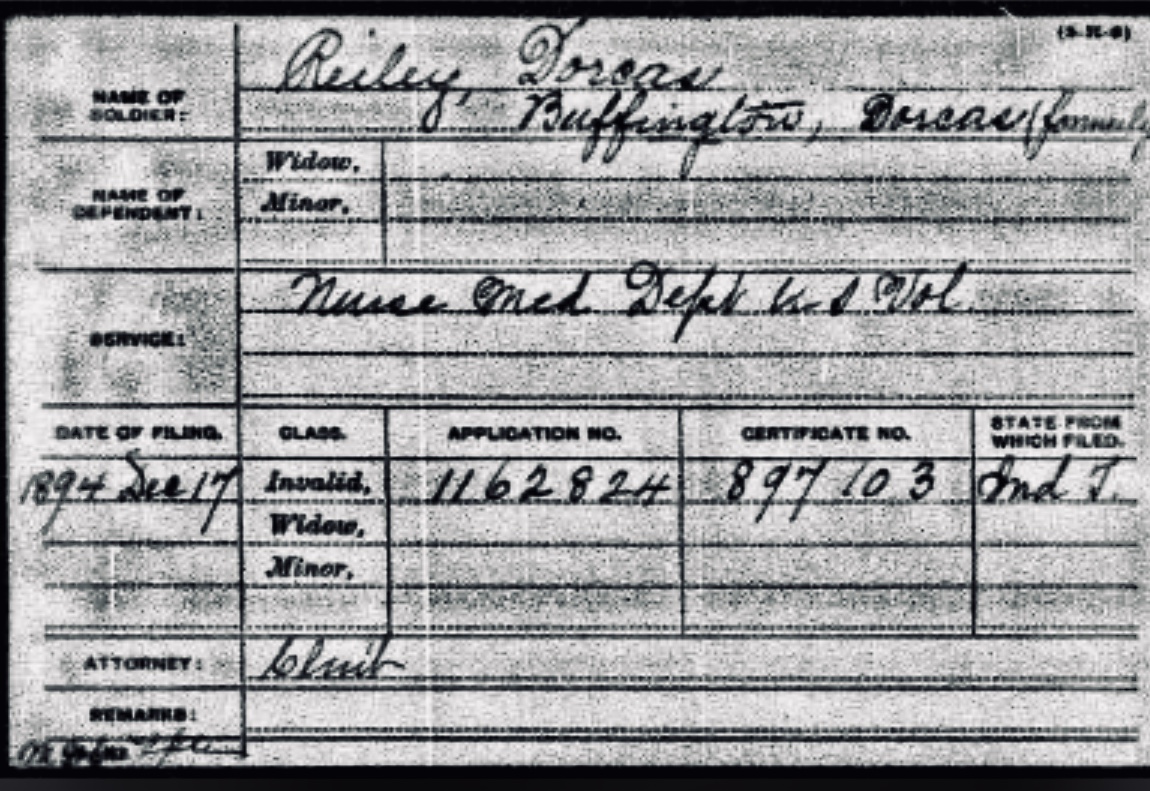 (3-R-8)
NAME OF SOLDIER:
Reiley, Dorcas
Buffington, Dorcas (formerly
NAME OF DEPENDENT:
Widow,
Minor,
SERVICE:
Nurse Med Dept U S Vol
DATE OF FILING. CLASS. APPLICATION NO. CERTIFICATE NO. STATE FROM WHICH FILED.
1894 Dec 17 Invalid, 1162824 897103 Ind T.
Widow,
Minor,
ATTORNEY:
REMARKS: